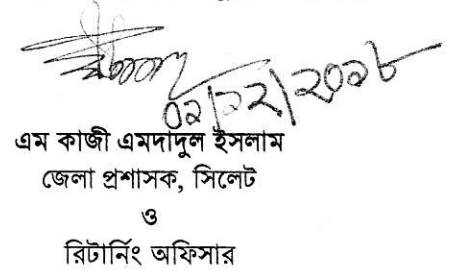 ০২/১২/২০১৮
এম কাজী এমদাদুল ইসলাম
জেলা প্রশাসক, সিলেট
ও
রিটার্নিং অফিসার